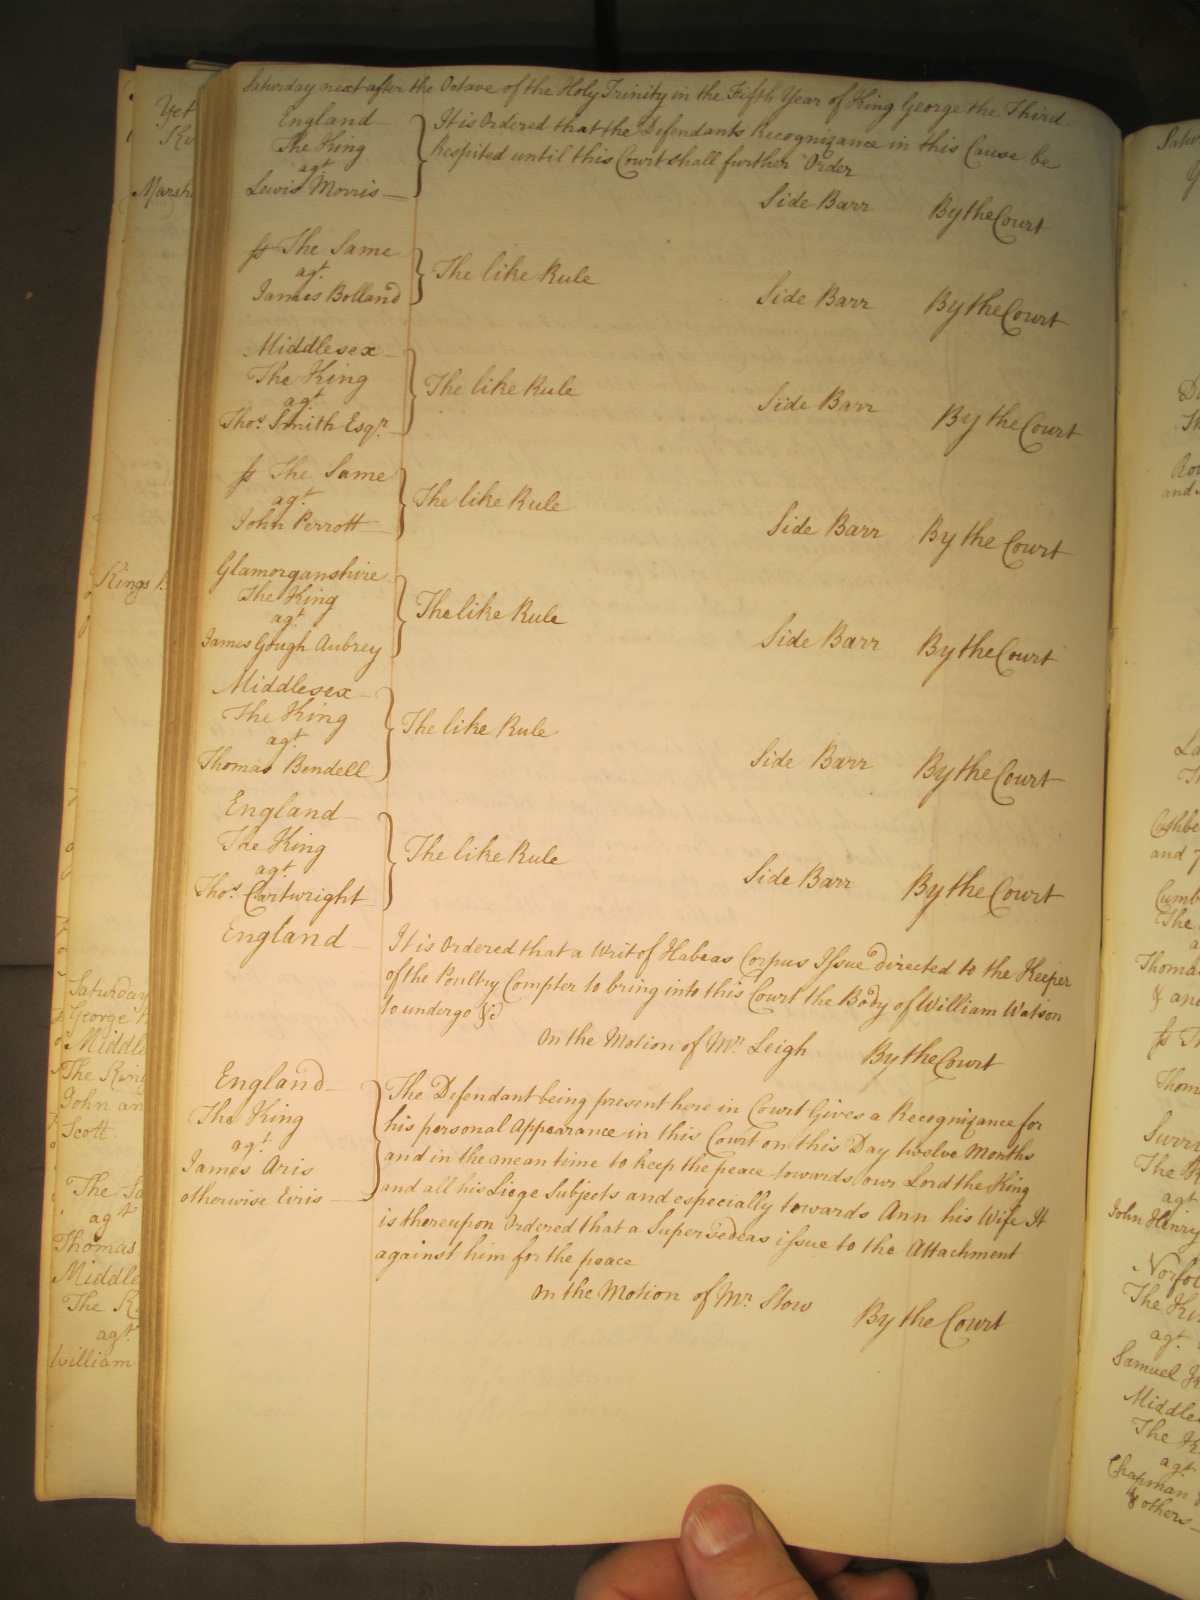 Saturday next after the Octave of the Holy Trinity in the Fifth Year of King George the Third
England
The King
agt
Lewis Morris
It is Ordered that the Defendants Recognizance in this Cause be
respited until this Court shall further Order
Side Barr By the Court
ss The Same
agt.
James Bolland
The like Rule
Side Barr By the Court
Middlesex
The King
agt
Thos. Smith Esqr.
The like Rule
Side Barr By the Court
ss The Same
agt.
John Perrott
The like Rule
Side Barr By the Court
Glamorganshire
The King
agt.
James Gough Aubrey
The like Rule
Side Barr By the Court
Middlesex
The King
agt
Thomas Bendell
The like Rule
Side Barr By the Court
England
The King
agt.
Thos. Cartwright
The like Rule
Side Barr By the Court
England
It is Ordered that a Writ of Habeas Corpus Issue directed to the Keeper
of the Poultry Compter to bring into this Court the Body of William Watson
to undergo &c
On the Motion of Mr. Leigh By the Court
England
The King
agt
James Aris
otherwise Eiris
The Defendant being present here in Court Gives a Recognizance for
his personal Appearance in this Court on this Day twelve Months
and in the mean time to keep the peace towards our Lord the King
and all his Liege Subjects and especially towards Ann his Wife It
is thereupon Ordered that a Supersedeas issue to the Attachment
against him for the peace
On the Motion of Mr. Stow By the Court
Yet
Marsh
Kings
Saturday
George
Middle
The King
John an
Scott
The Sa
agt
Thomas
Middle
The K
agt.
William
and
and
Cumb
The
Thoma
& an
ss Th
Thom
Surry
The K
agt
John Henry
Norfol
The Ki
agt.
Samuel
Middle
The K
agt
Chapman
& others